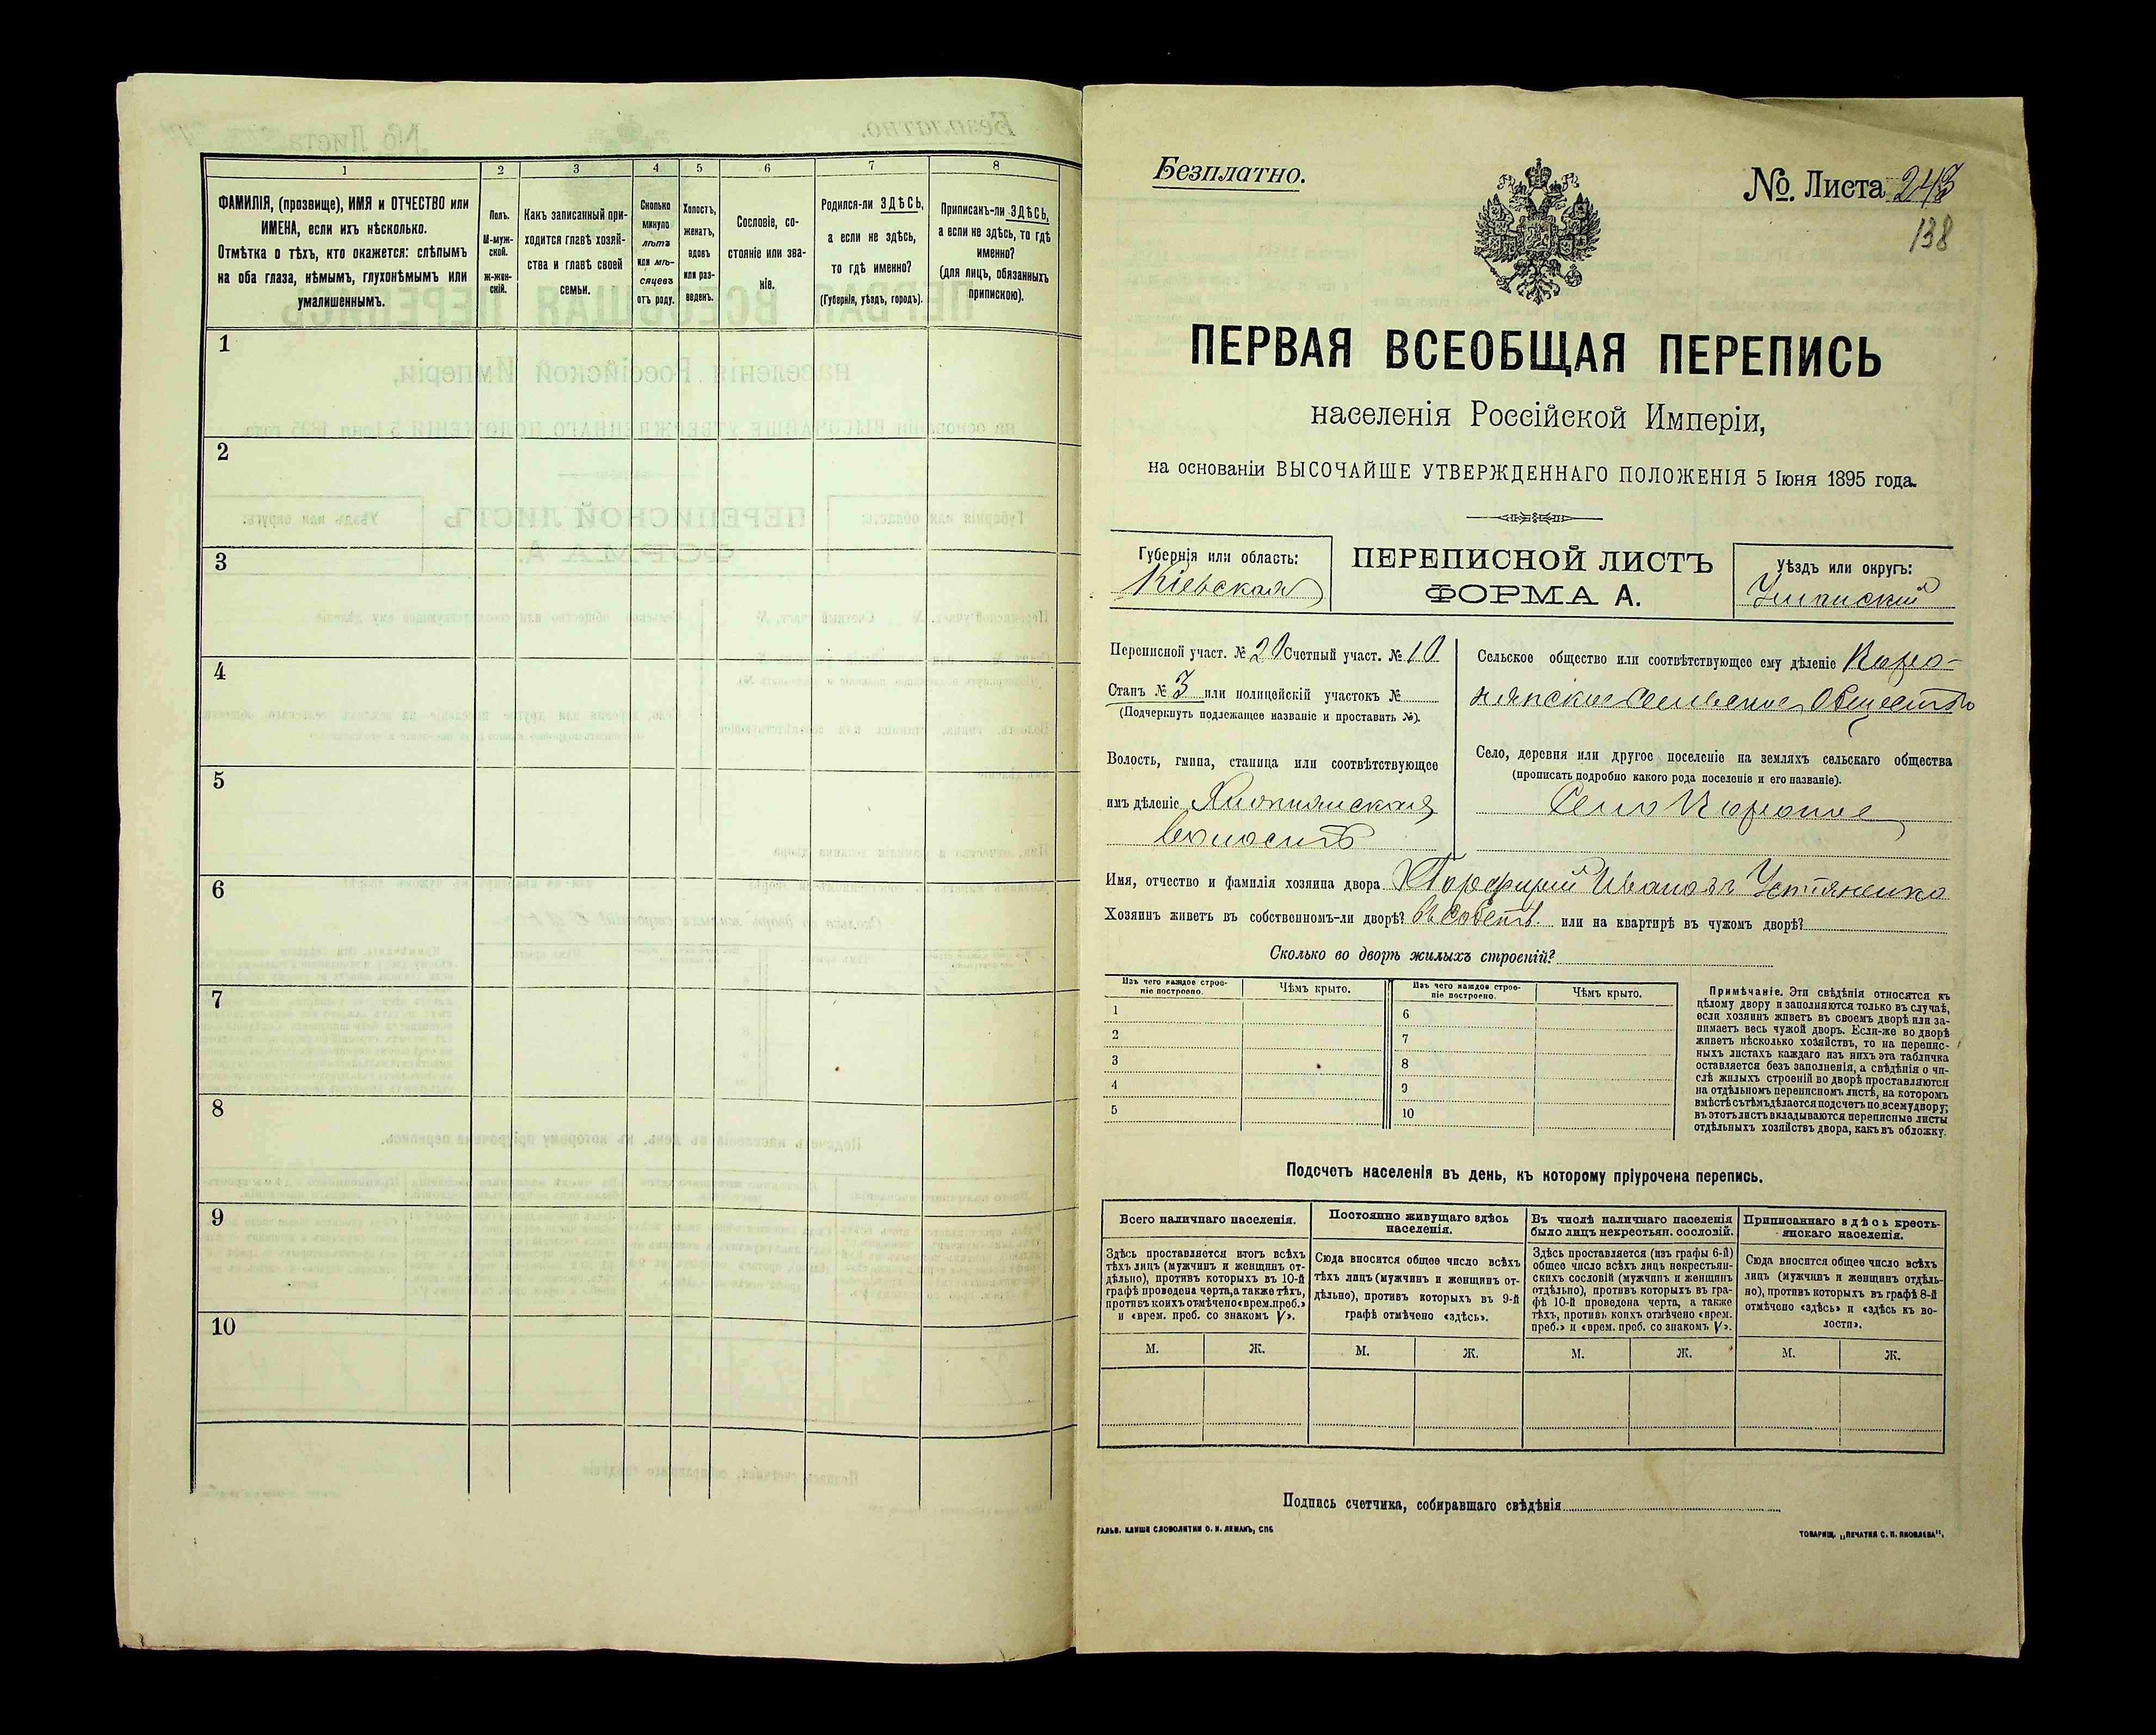 1
2
3
4
5
6
7
8
ФАМИЛІЯ, (прозвище), ИМЯ и ОТЧЕСТВО или
ИМЕНА, если ихъ нѣсколько.
Отмѣтка о тѣхъ, кто окажется: слѣпымъ
на оба глаза, нѣмымъ, глухонѣмымъ или
умалишеннымъ.
Полъ.
М-муж-
ской.
Ж-жен-
скій.
Какъ записанный при-
ходится главѣ хозяй-
ства и главѣ своей
семьи.
Сколько
минуло
лѣтъ
или мѣ-
сяцевъ
отъ роду.
Холостъ,
женатъ,
вдовъ
или раз-
веденъ.
Сословіе, со-
стояніе или зва-
ніе.
Родился-ли ЗДѢСЬ,
а если не здѣсь,
то гдѣ именно?
(Губернія, уѣздъ, городъ).
Приписанъ-ли ЗДѢСЬ,
а если не здѣсь, то гдѣ
именно?
(для лицъ, обязанныхъ
припискою).
1
2
3
4
5
6
7
8
9
10
Безплатно.
№ Листа 243
138
ПЕРВАЯ ВСЕОБЩАЯ ПЕРЕПИСЬ
населенія Россійской Имперіи,
на основаніи ВЫСОЧАЙШЕ УТВЕРЖДЕННАГО ПОЛОЖЕНІЯ 5 Іюня 1895 года.
Губернія или область:
Кіевская
ПЕРЕПИСНОЙ ЛИСТЪ
ФОРМА А.
Уѣздъ или округъ:
Уманскій
Переписной участ. № 20 Счетный участ. № 10
Станъ № 3 или полицейскій участокъ №
(Подчеркнуть подлежащее названіе и проставить №).
Волость, гмина, станица или соотвѣтствующее
имъ дѣленіе
волость
Сельское общество или соотвѣтствующее ему дѣленіе
сельское Общество
Село, деревня или другое поселеніе на земляхъ сельскаго общества
(прописать подробно какого рода поселеніе и его названіе).
Село
Имя, отчество и фамилія хозяина двора Порфирій Ивановъ Устяненко
Хозяинъ живетъ въ собственномъ-ли дворѣ? въ собств. или на квартирѣ въ чужомъ дворѣ?
Сколько во дворѣ жилыхъ строеній?
Изъ чего каждое строе-
ніе построено.
Чѣмъ крыто.
Изъ чего каждое строе-
ніе построено.
Чѣмъ крыто.
1
2
3
4
5
6
7
8
9
10
Примѣчаніе. Эти свѣдѣнія относятся къ
цѣлому двору и заполняются только въ случаѣ,
если хозяинъ живетъ въ своемъ дворѣ или за-
нимаетъ весь чужой дворъ. Если-же во дворѣ
живетъ нѣсколько хозяйствъ, то на перепис-
ныхъ листахъ каждаго изъ нихъ эта табличка
оставляется безъ заполненія, а свѣдѣнія о чи-
слѣ жилыхъ строеній во дворѣ проставляются
на отдѣльномъ переписномъ листѣ, на которомъ
вмѣстѣ съ тѣмъ дѣлается подсчетъ по всему двору;
въ этотъ листъ вкладываются переписные листы
отдѣльныхъ хозяйствъ двора, какъ въ обложку.
Подсчетъ населенія въ день, къ которому пріурочена перепись.
Всего наличнаго населенія.
Здѣсь проставляется итогъ всѣхъ
тѣхъ лицъ (мужчинъ и женщинъ от-
дѣльно), противъ которыхъ въ 10-й
графѣ проведена черта, а также тѣхъ,
противъ коихъ отмѣчено «врем. преб.»
и «врем. преб. со знакомъ V».
Постоянно живущаго здѣсь
населенія.
Сюда вносится общее число всѣхъ
тѣхъ лицъ (мужчинъ и женщинъ от-
дѣльно), противъ которыхъ въ 9-й
графѣ отмѣчено «здѣсь».
Въ числѣ наличнаго населенія
было лицъ некрестьян. сословій.
Здѣсь проставляется (изъ графы 6-й)
общее число всѣхъ лицъ некрестьян-
скихъ сословій (мужчинъ и женщинъ
отдѣльно), противъ которыхъ въ гра-
фѣ 10-й проведена черта, а также
тѣхъ, противъ коихъ отмѣчено «врем.
преб.» и «врем. преб. со знакомъ V».
Приписаннаго здѣсь кресть-
янскаго населенія.
Сюда вносится общее число всѣхъ
лицъ (мужчинъ и женщинъ отдѣль-
но), противъ которыхъ въ графѣ 8-й
отмѣчено «здѣсь» и «здѣсь къ во-
лости».
М. Ж. М. Ж. М. Ж. М. Ж.
Подпись счетчика, собиравшаго свѣдѣнія
ГАЛЬВ. КЛИШЕ СЛОВОЛИТНИ О. И. ЛЕМАНЪ, СПБ
ТОВАРИЩ. „ПЕЧАТНЯ С. П. ЯКОВЛЕВА".